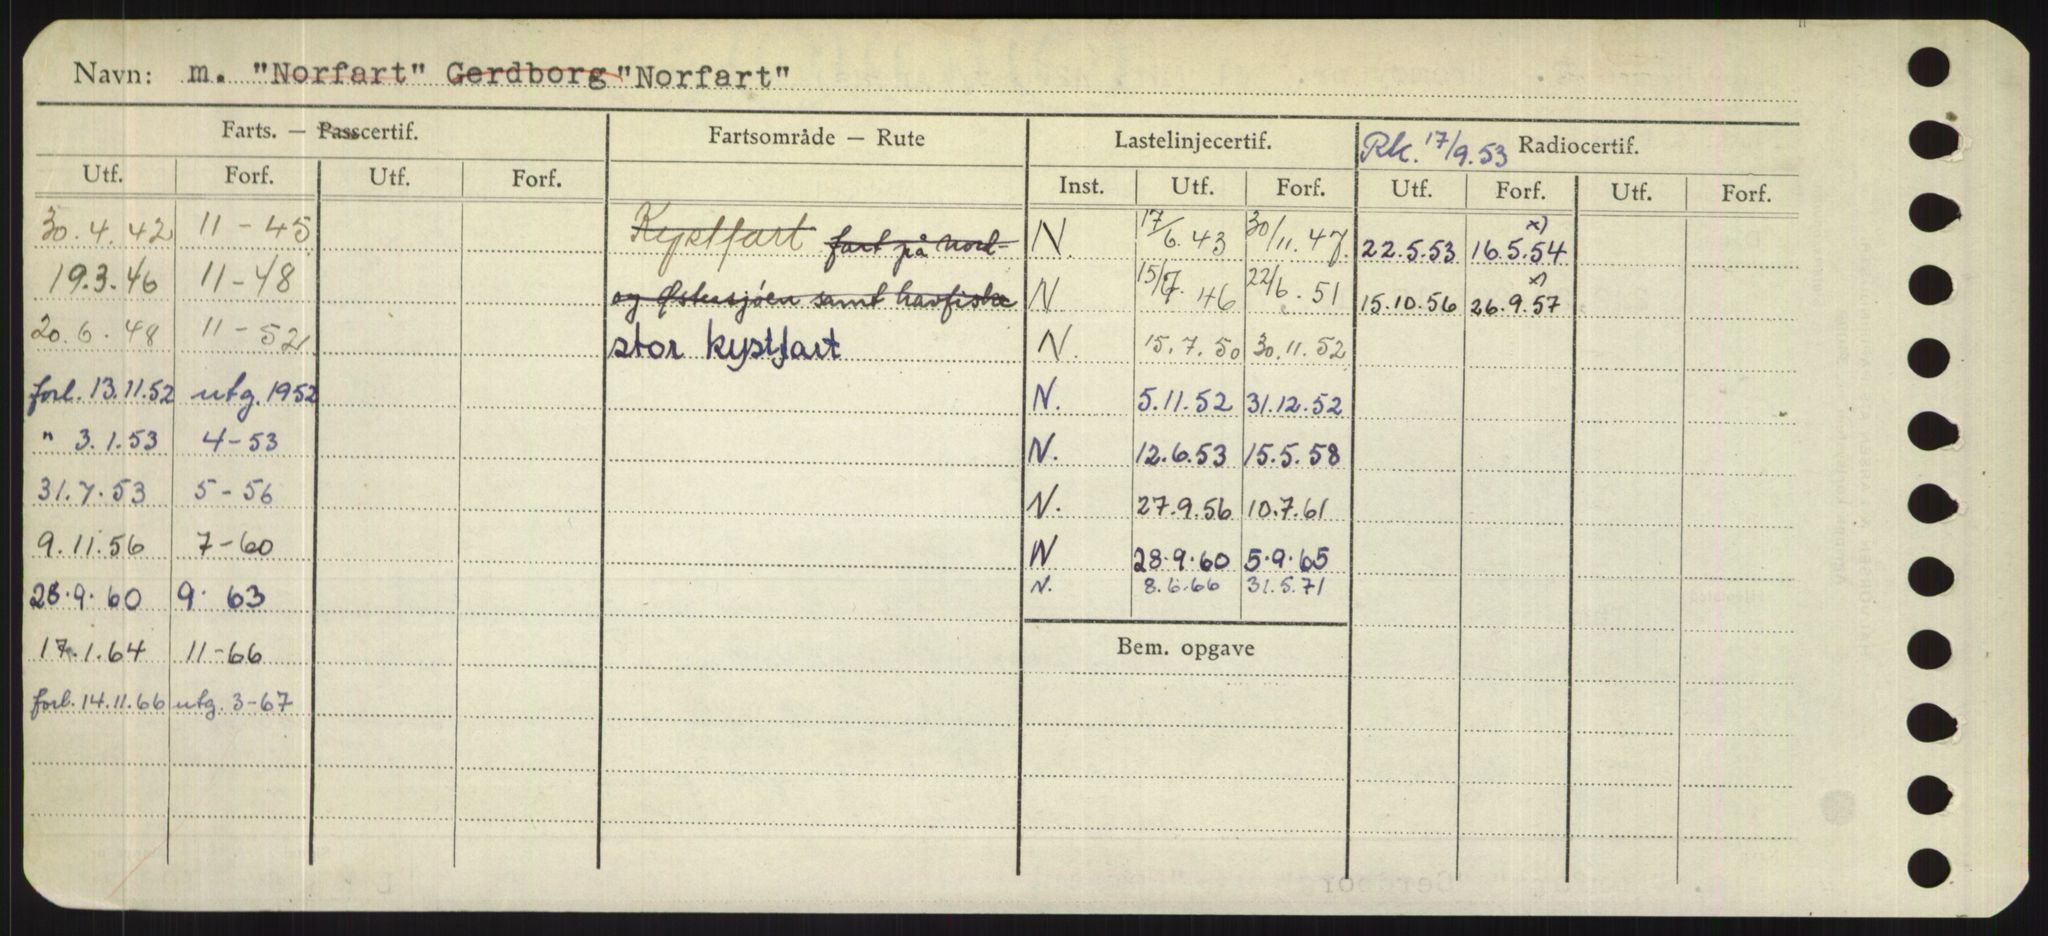 Navn: m. "Norfart" Gerdborg "Norfart"
Farts. — Passcertif. Fartsområde — Rute Lastelinjecertif. Rk. 17/9.53 Radiocertif.
Utf. Forf. Utf. Forf. Inst. Utf. Forf. Utf. Forf. Utf. Forf.
30.4.42 11-45 Kystfart fart på Nord- N. 17/6.43 30/11.47 22.5.53 16.5.54 x)
19.3.46 11-48 og Østersjøen samt havfiske N 46 22/6.51 15.10.56 26.9.57 x)
20.6.48 11-52 stor kystfart N. 15.7.50 30.11.52
forl. 13.11.52 utg. 1952 N. 5.11.52 31.12.52
" 3.1.53 4-53 N. 12.6.53 15.5.58
31.7.53 5-56 N. 27.9.56 10.7.61
9.11.56 7-60 N 28.9.60 5.9.65
28.9.60 9. 63 N. 8.6.66 31.5.71
17.1.64 11-66 Bem. opgave
forl. 14.11.66 utg. 3-67